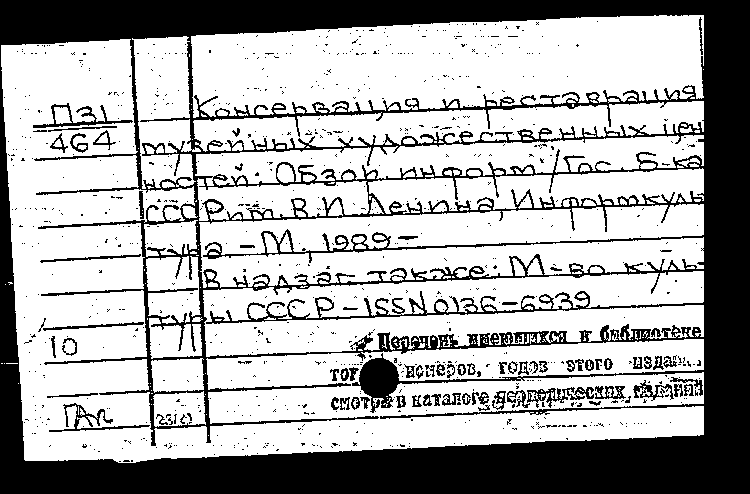 П31
464
Консервация и реставрация
музейных художественных цен
ностей: Обзор. информ./Гос. Б-ка
СССР им. В.И. Ленина, Информкуль
тура. - М., 1989 -
В надзаг. также: М-во куль-
туры СССР - ISSN 0136-6939
10
Перечень имеющихся в библиотеке
номеров, годов этого издан
смотри в каталоге периодических изданий